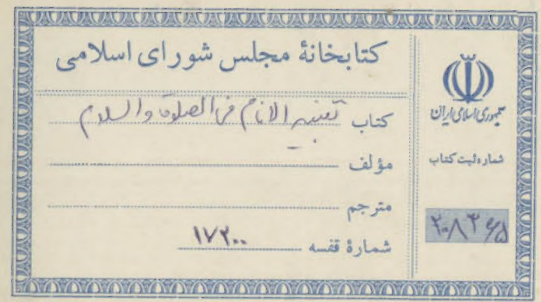 کتابخانهٔ مجلس شورای اسلامی
کتاب تنبیه الانام فی الصلاة والسلام
مؤلف
مترجم
شمارهٔ قفسه ۱۷۲۰۰
جمهوری اسلامی ایران
شماره ثبت کتاب
۲۰۸۳۶۵